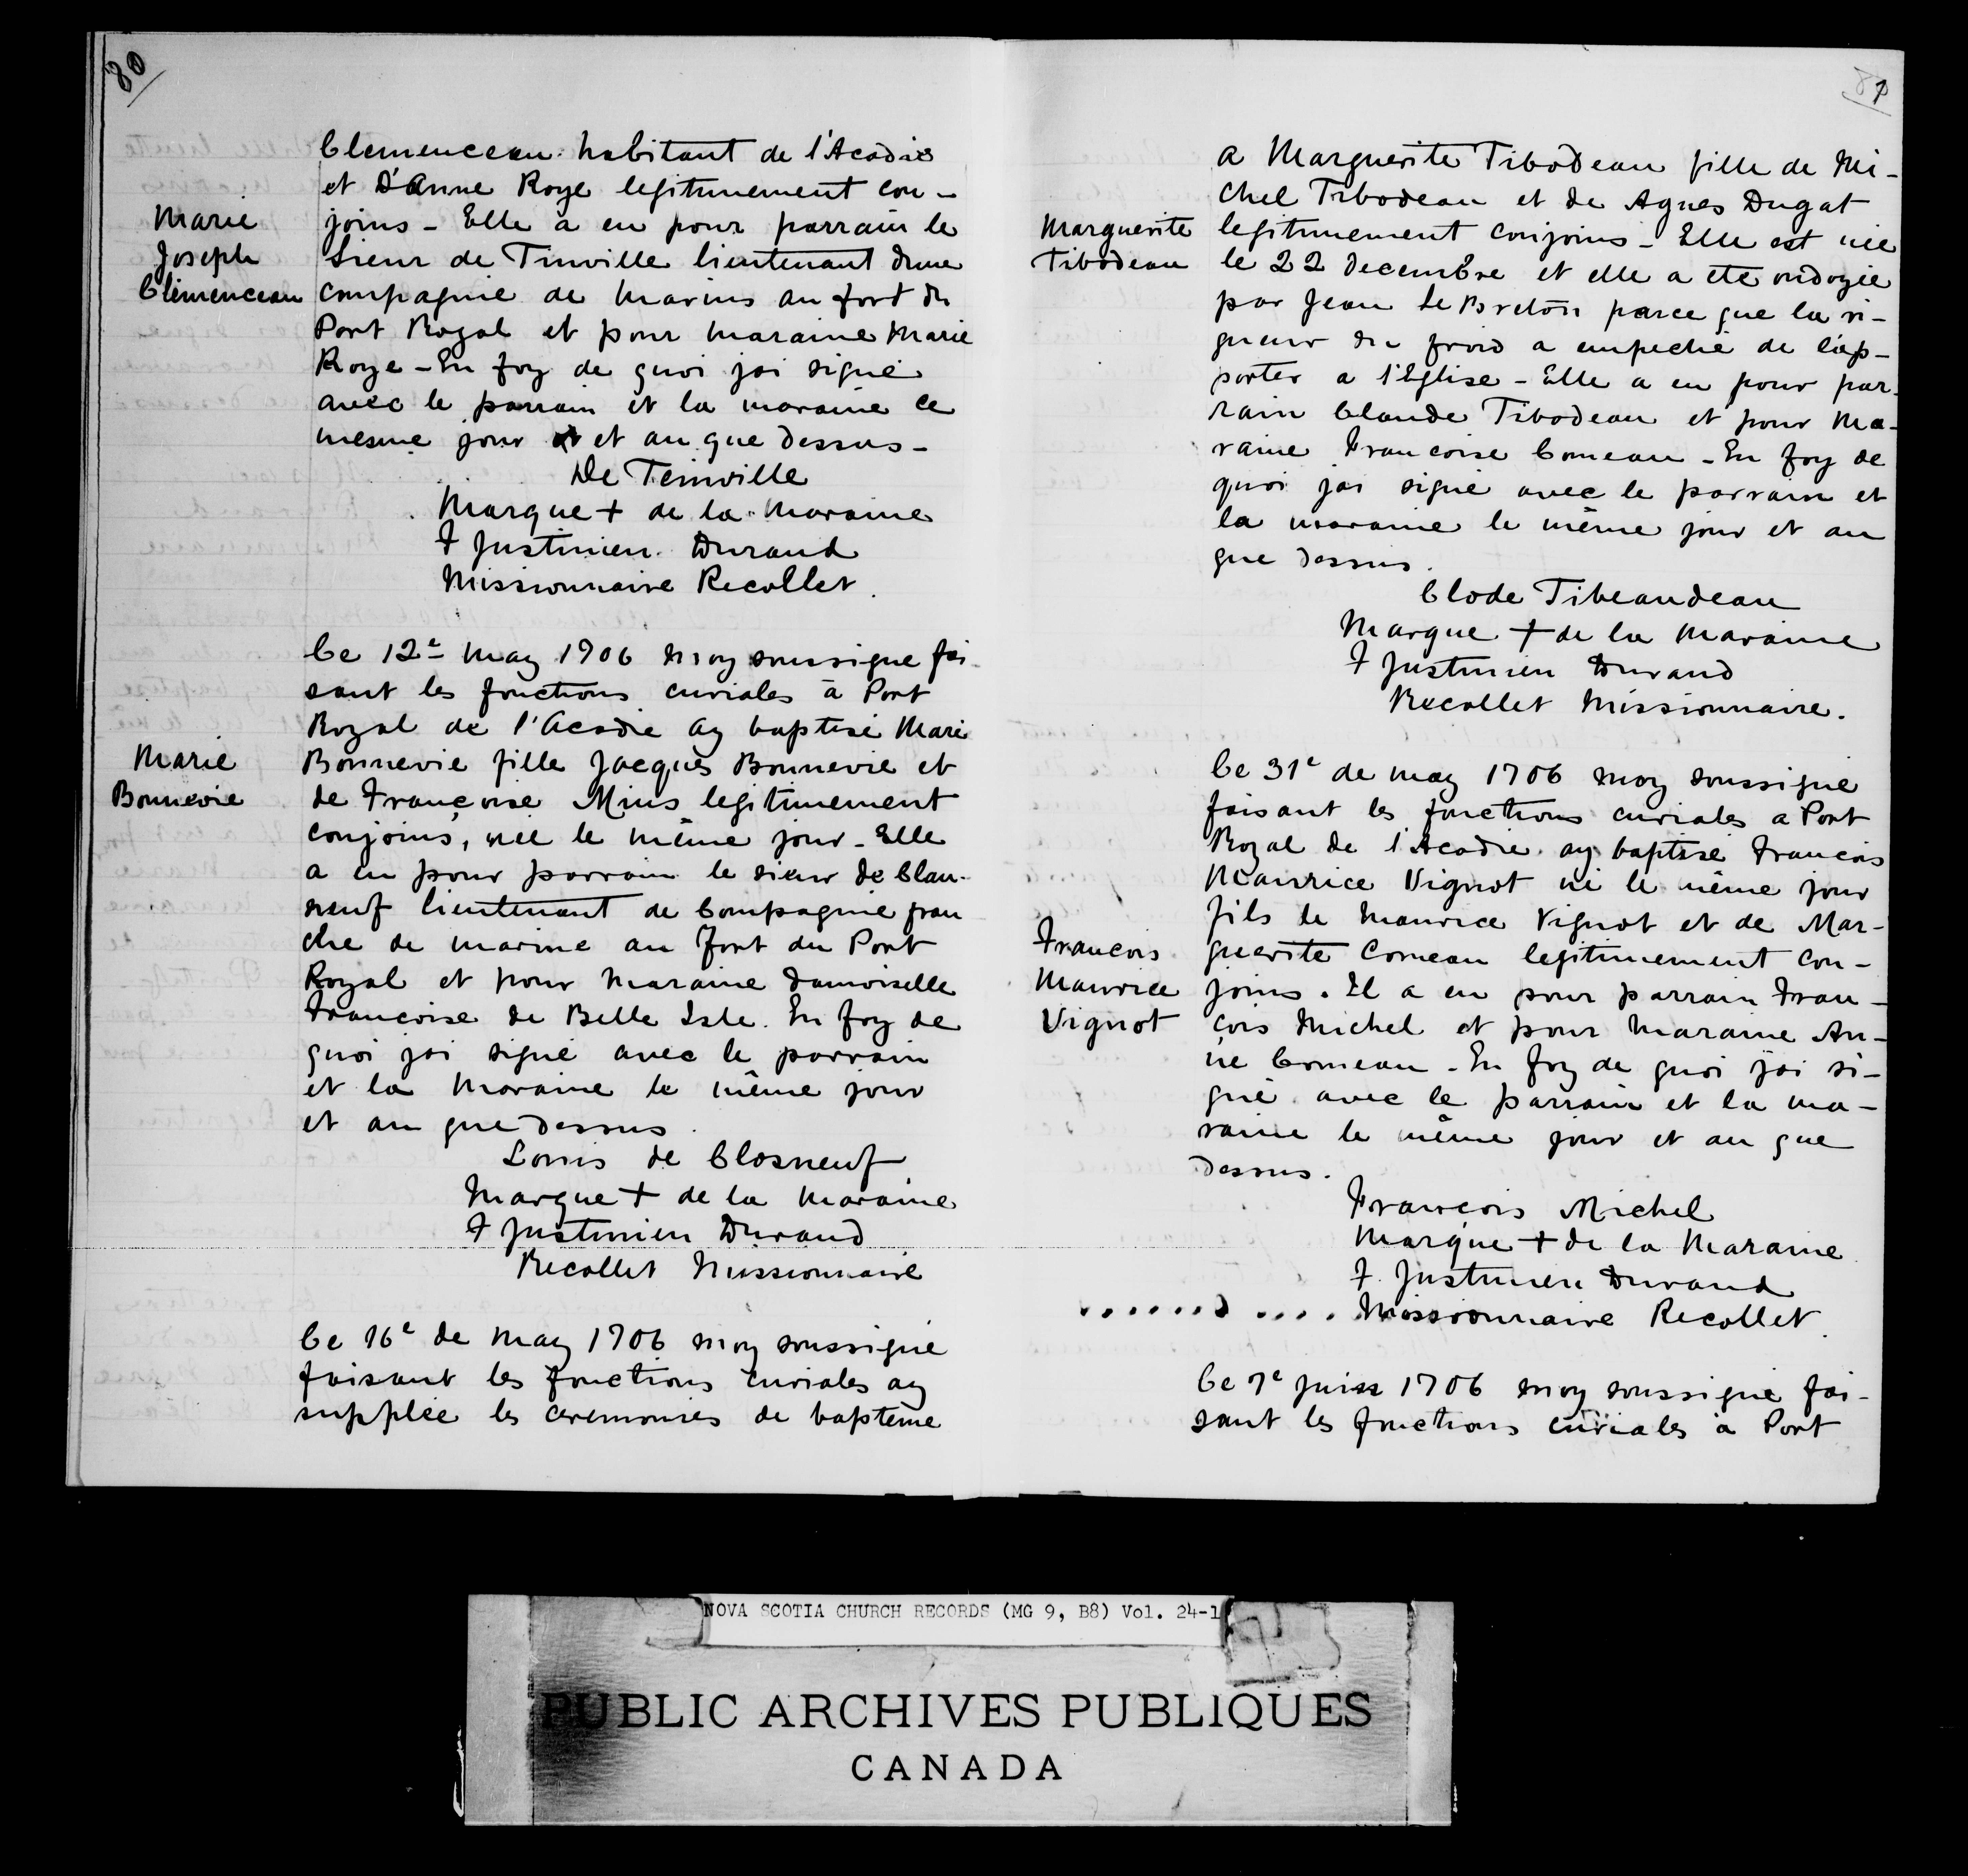 80
Clemenceau habitant de l'Acadie
et D'Anne Roye legitimement con-
joins - Elle a eu pour parrain le
Sieur de Tinville lieutenant dune
compagnie de marins au fort du
Port Royal et pour maraine Marie
Roye - En foy de quoi jai signé
avec le parrain et la maraine ce
mesme jour et an que dessus -
De Teinville
Marque + de la Maraine
F Justinien Durand
Missionnaire Recollet.
Marie
Joseph
Clémenceau
Ce 12e May 1706 moy soussigne fai-
sant les fonctions curiales à Port
Royal de l'Acadie ay baptisé Marie
Bonnevie fille Jacques Bonnevie et
de Françoise Mius legitimement
conjoins, née le même jour - Elle
a eu pour parrain le sieur de Clau-
neuf lieutenant de Compagnie fran
che de marine au Fort du Port
Royal et pour Maraine damoiselle
Francoise de Belle Isle. En foy de
quoi jai signé avec le parrain
et la Maraine le même jour
et an que dessus.
Louis de Closneuf
Marque + de la Maraine
F Justinien Durand
Recollet Missionnaire
Marie
Bonnevie
Ce 16e de May 1706 moy soussigné
faisant les fonctions curiales ay
supplée les ceremonies de baptême
81
a Marguerite Tibodeau fille de Mi-
chel Tibodeau et de Agnes Dugat
legitimement conjoins - Elle est née
le 22 Decembre et elle a ete ondoyée
par Jean Le Breton parce que la ri-
gueur du froid a empeché de l'ap-
porter a l'Eglise - Elle a eu pour par-
rain Claude Tibodeau et pour Ma-
raine Francoise Comeau - En foy de
quoi jai signé avec le parrain et
la maraine le même jour et an
que dessus.
Clode Tibeaudeau
Marque + de la Maraine
F Justinien Durand
Recollet Missionnaire.
Marguerite
Tibodeau
Ce 31e de may 1706 moy soussigné
faisant les fonctions curiales a Port
Royal de l'Acadie ay baptisé Francois
Maurice Vignot né le même jour
fils de Maurice Vignot et de Mar-
guerite Comeau legitimement con-
joins. Il a eu pour parrain Fran-
çois Michel et pour Maraine An-
ne Comeau - En foy de quoi jai si-
gné avec le parrain et la ma-
raine le même jour et an que
dessus.
François Michel
Marque + de la Maraine
F. Justinien Durand
Missionnaire Recollet.
Francois
Maurice
Vignot
Ce 7e juin 1706 moy soussigné fai-
sant les fonctions curiales à Port
NOVA SCOTIA CHURCH RECORDS (MG 9, B8) Vol. 24-1
PUBLIC ARCHIVES PUBLIQUES
CANADA